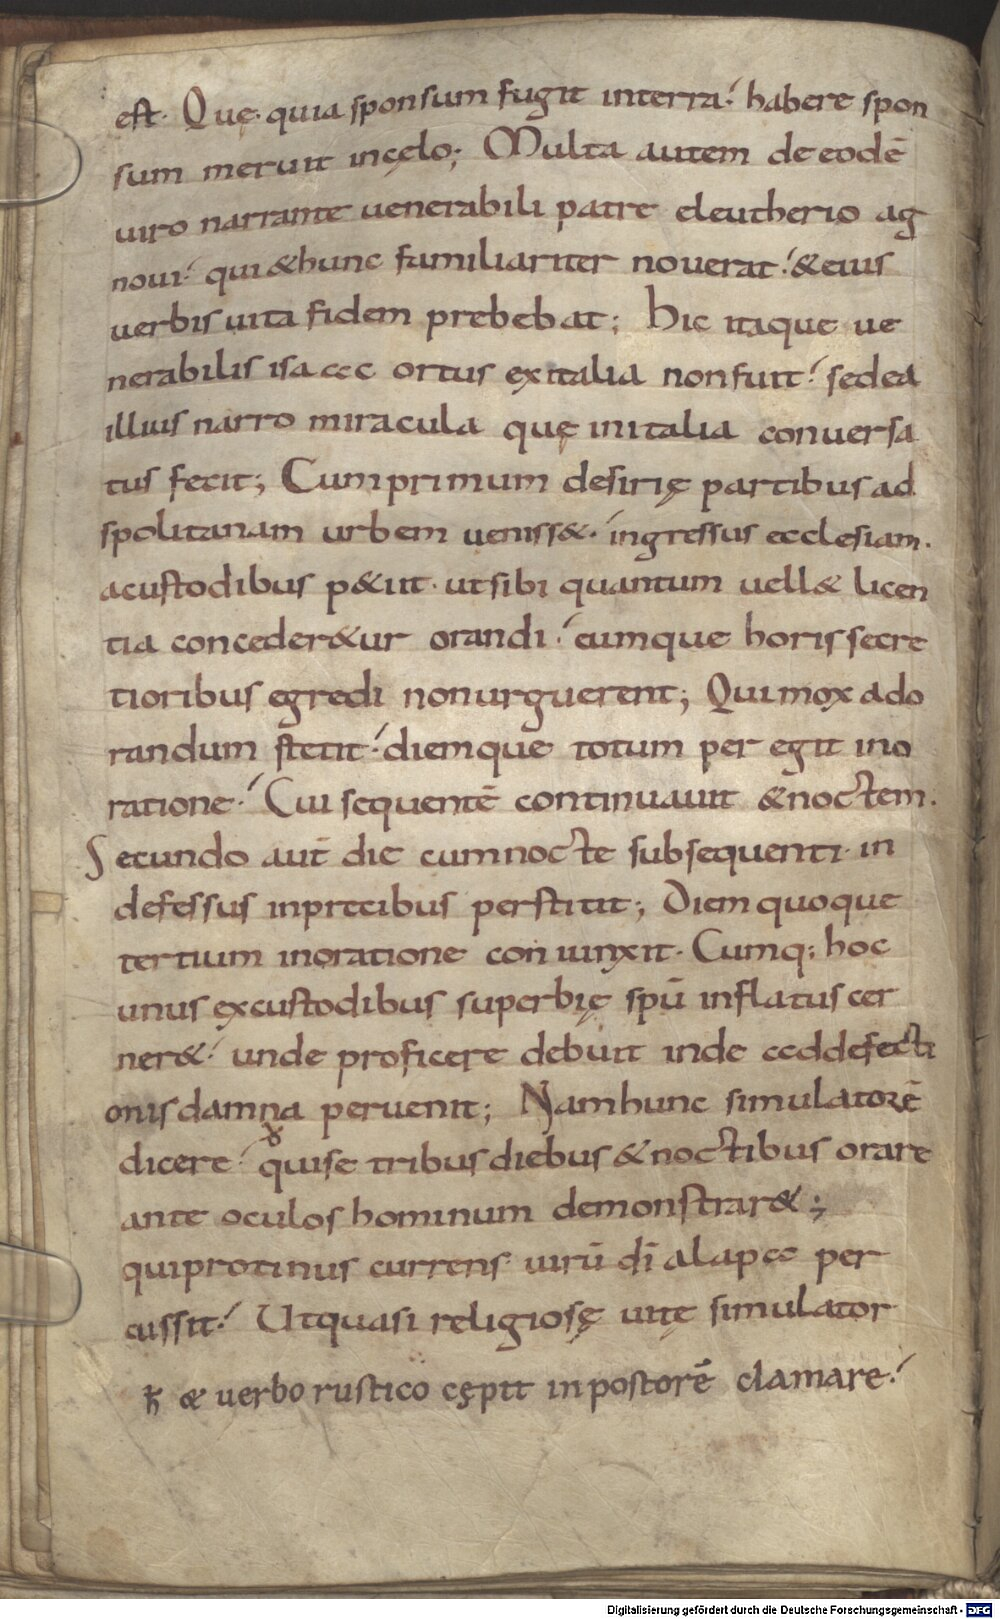 est. Quę. quia sponsum fugit interra. habere spon
sum meruit incęlo; Multa autem de eodē
uiro narrante uenerabili patre eleutherio ag
noui. qui &hunc familiariter nouerat. &eius
uerbis uita fidem prebebat; Hic itaque ue
nerabilis isaac ortus exitalia nonfuit. sedea
illius narro miracula quę initalia conuersa
tus fecit; Cumprimum desirię partibus ad
spolitanam urbem ueniss&. ingressus ecclesiam.
acustodibus p&iit. utsibi quantum uell& licen
tia conceder&ur orandi. eumque horis secre
tioribus egredi nonurguerent; Quimox ado
randum stetit. diemque totum per egit ino
ratione. Cui sequentē continuauit &noctem.
Secundo aut̄ die cumnocte subsequenti. in
defessus inprecibus perstitit; Diem quoque
tertium inoratione coniunxit. Cumq; hoc
unus excustodibus superbię spū inflatus cer
ner&. unde proficere debuit inde addefecti
onis damna peruenit; Nam hunc simulatorē
dicere. quise tribus diebus & noctibus orare
ante oculos hominum demonstrar&;
quiprotinus currens uirū dī alapa per
cussit. Utquasi religiosę uitę simulator
ħ & uerbo rustico cępit inpostorē clamare.
Digitalisierung gefördert durch die Deutsche Forschungsgemeinschaft - DFG